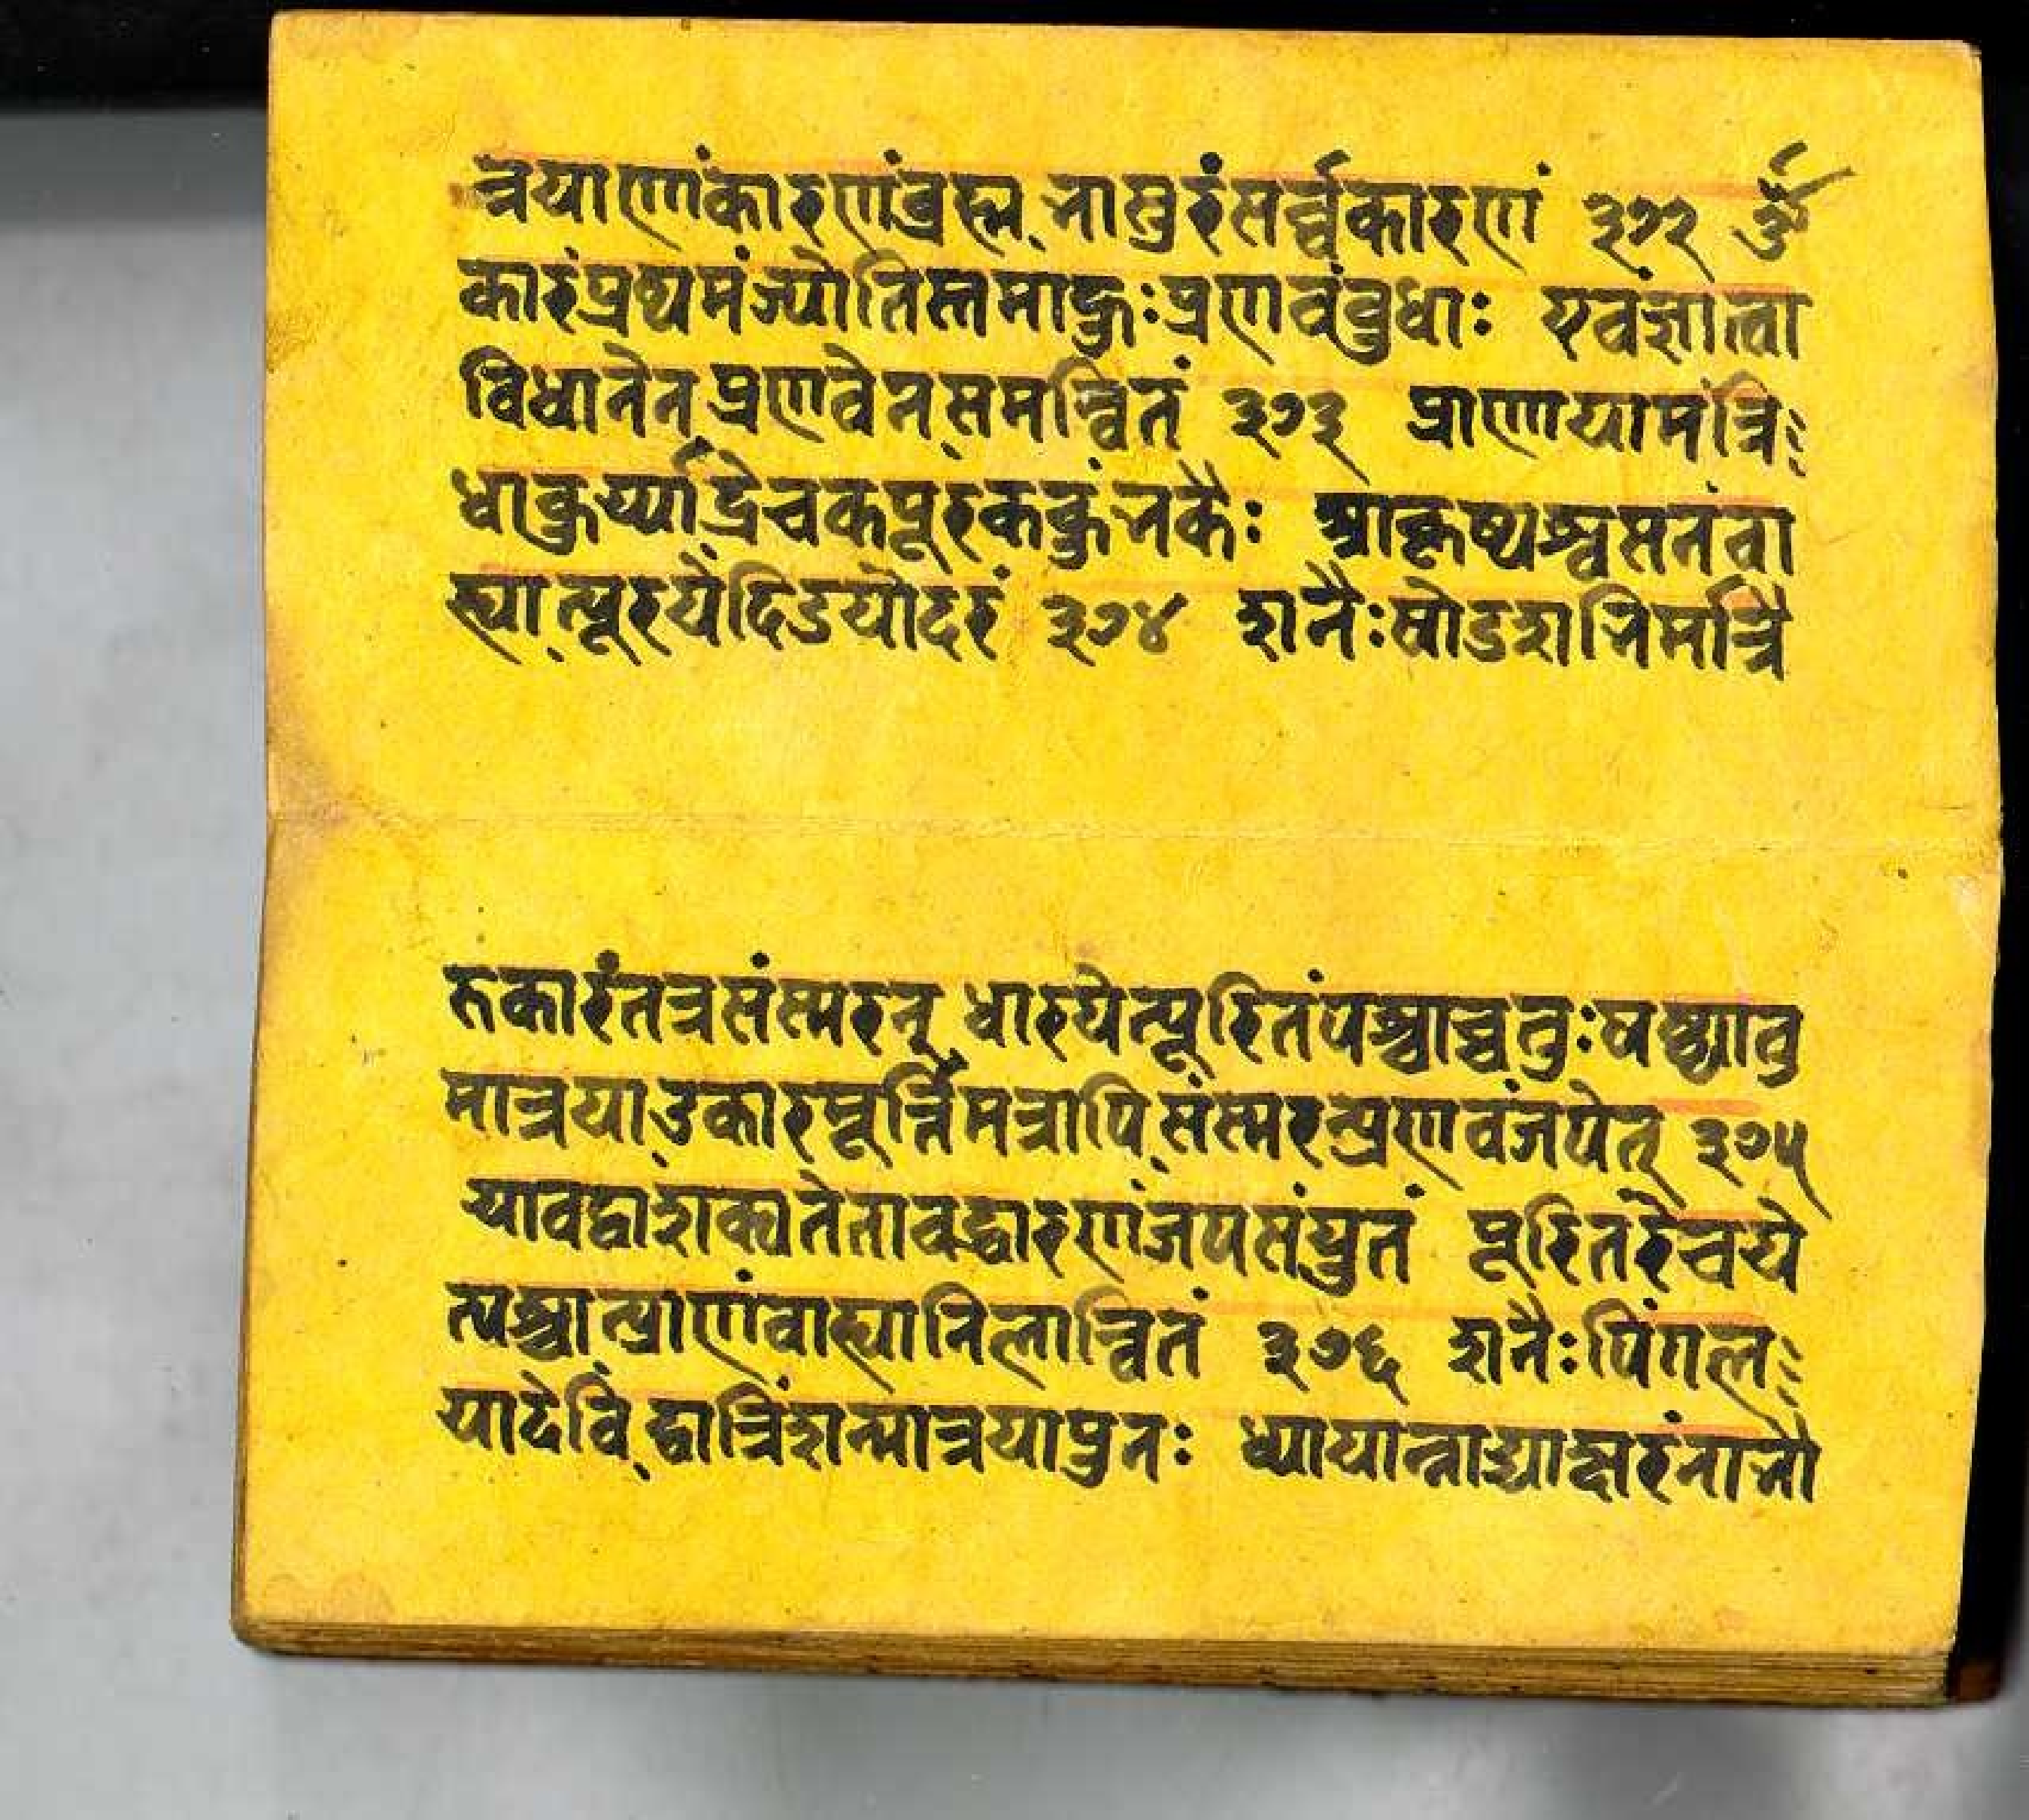 त्रयाणांकारणंब्रह्म भासुरंसर्व्वकारणं ३७२ ॐ
कारंप्रथमंज्योतिस्तमाहुःप्रणवंबुधाः एवंज्ञात्वा
विधानेन प्रणवेन समन्वितं ३७३ प्राणायामंत्रि
धाकुर्य्याद्रेचकपूरककुंभकैः आकृष्यश्वसनंवा
ह्यात्पूरयेदिडयोदरं ३७४ शनैःषोडशभिर्मात्रै
रुकारंतत्रसंस्मरन् धारयेत्पूरितंपश्चाच्चतुःषष्ठ्यातु
मात्रया उकारमूर्त्तिमत्रापि संस्मरन्प्रणवंजपेत् ३७५
यावद्वाशक्यतेतावद्धारणंजपसंयुत पूरितंरेचये
त्पश्चात्प्राणंवाह्यानिलान्वितं ३७६ शनैःपिंगल
यादेवि द्वात्रिंशन्मात्रयापुनः ध्यायान्नाद्याक्षरंनाभौ